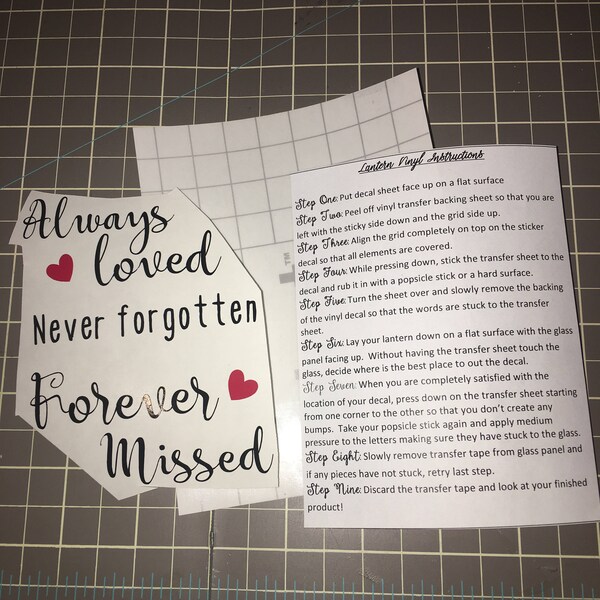 Always
loved
Never forgotten
Forever
Missed
TM
Lantern Vinyl Instructions
Step One: Put decal sheet face up on a flat surface
Step Two: Peel off vinyl transfer backing sheet so that you are
left with the sticky side down and the grid side up.
Step Three: Align the grid completely on top on the sticker
decal so that all elements are covered.
Step Four: While pressing down, stick the transfer sheet to the
decal and rub it in with a popsicle stick or a hard surface.
Step Five: Turn the sheet over and slowly remove the backing
of the vinyl decal so that the words are stuck to the transfer
sheet.
Step Six: Lay your lantern down on a flat surface with the glass
panel facing up. Without having the transfer sheet touch the
glass, decide where is the best place to out the decal.
Step Seven: When you are completely satisfied with the
location of your decal, press down on the transfer sheet starting
from one corner to the other so that you don't create any
bumps. Take your popsicle stick again and apply medium
pressure to the letters making sure they have stuck to the glass.
Step Eight: Slowly remove transfer tape from glass panel and
if any pieces have not stuck, retry last step.
Step Nine: Discard the transfer tape and look at your finished
product!